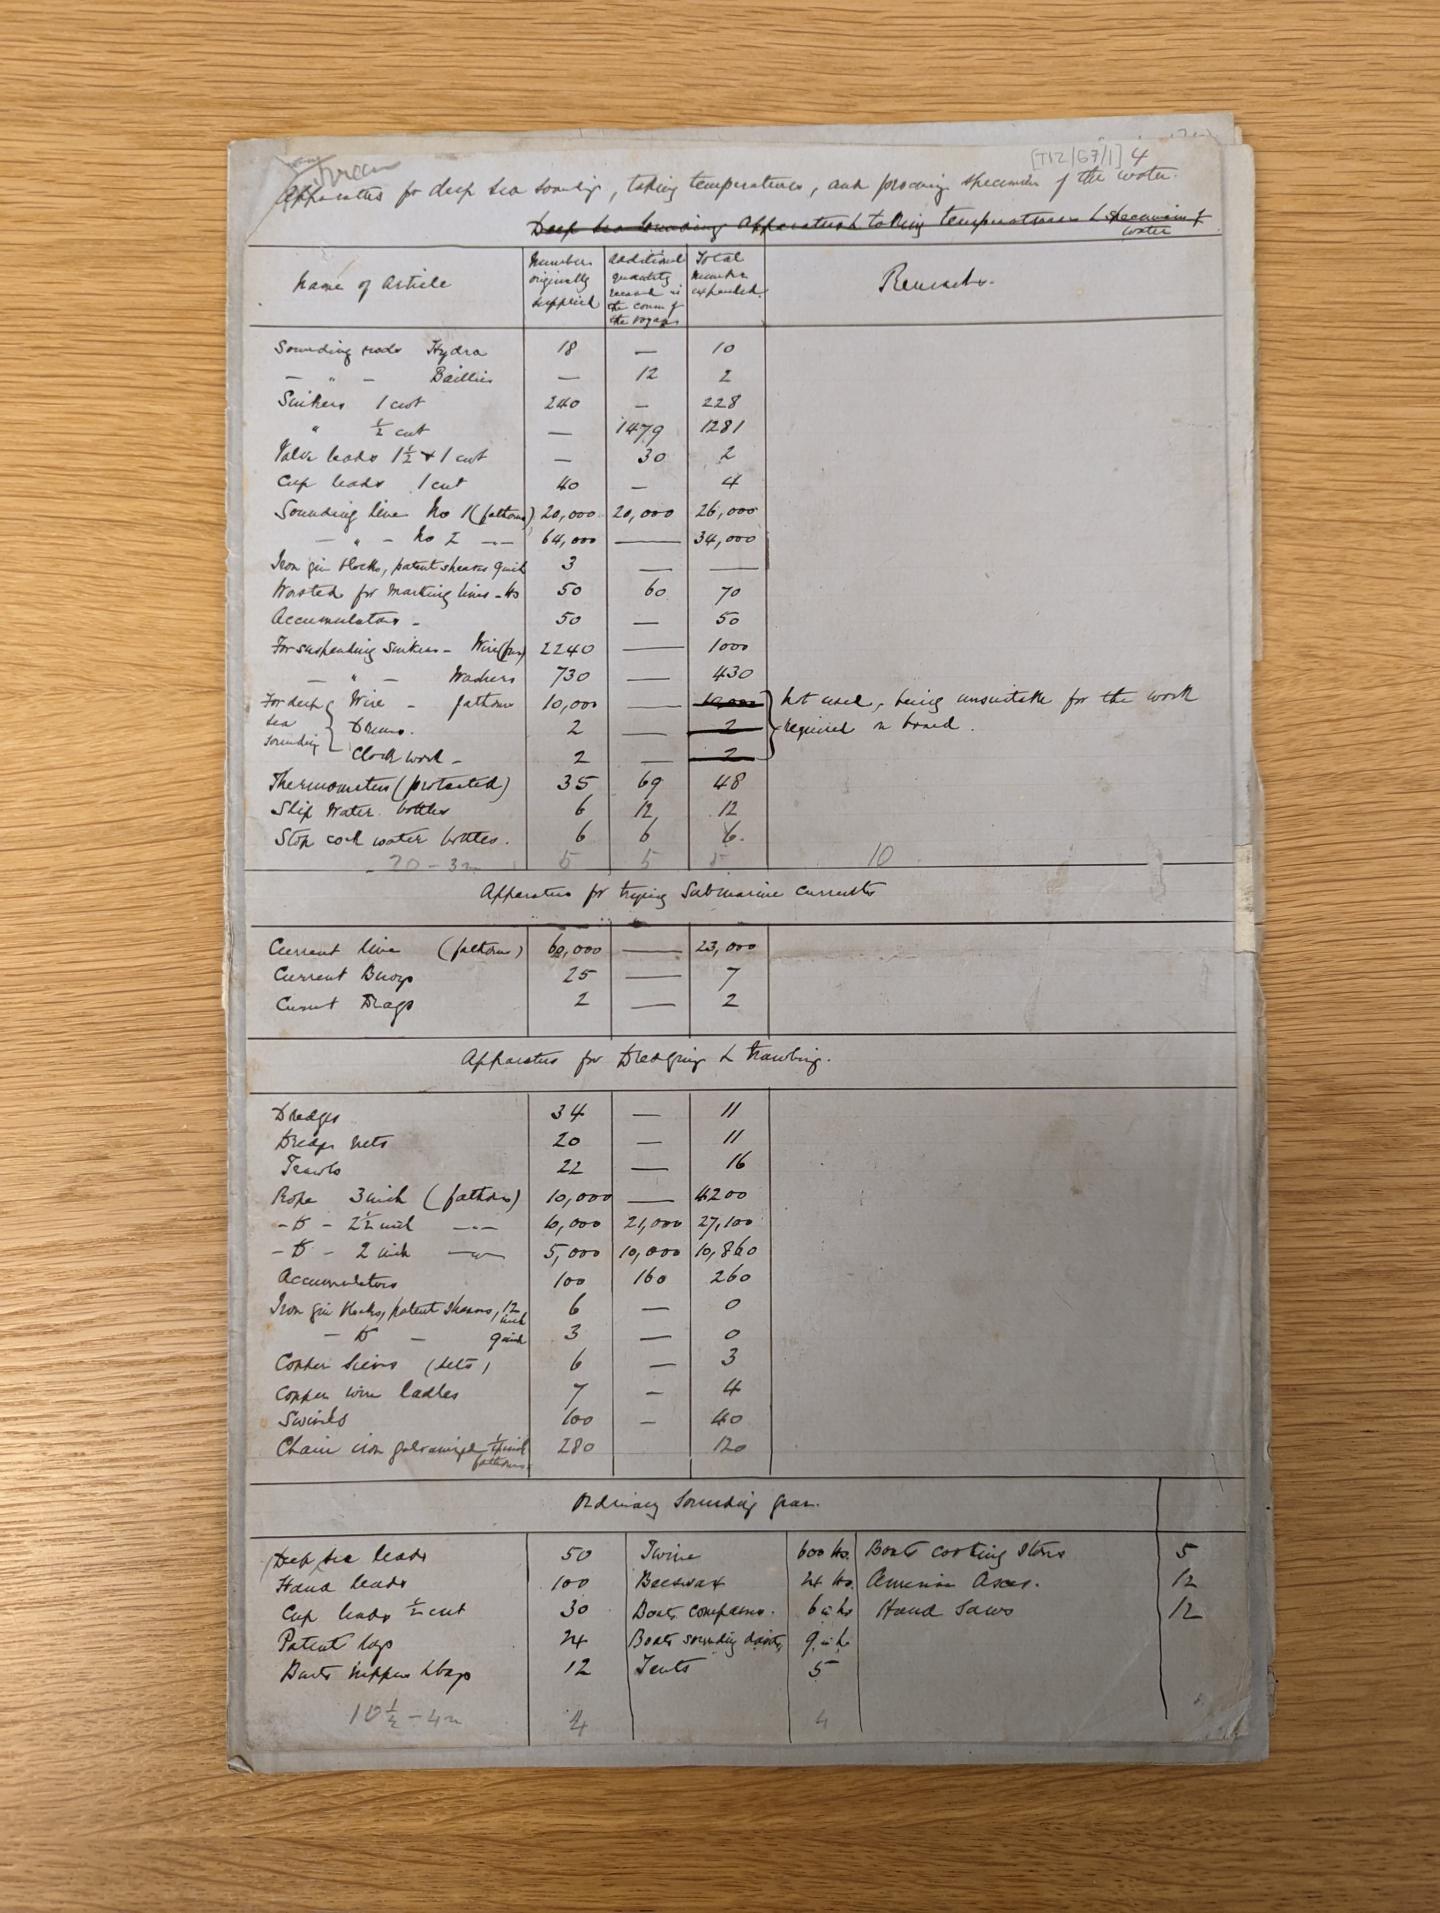 [T12/G7/1] 4
Apparatus for deep sea sounding, taking temperatures, and procuring specimens of the water.
Deep sea Sounding Apparatus & taking temperatures & specimens of
water
Name of Article | Number originally supplied | Additional quantity received in the course of the voyage | Total number expended | Remarks.
Sounding rods Hydra 18 — 10
— " — Baillies — 12 2
Sinkers 1 cwt 240 — 228
" ½ cwt — 1479 1281
Valve leads 1½ & 1 cwt — 30 2
Cup leads 1 cwt 40 — 4
Sounding line No 1 (fathoms) 20,000 20,000 26,000
— " — No 2 —"— 64,000 — 34,000
Iron gin blocks, patent sheaves 9 inch 3 — —
Worsted for marking lines - lbs 50 60 70
Accumulators - 50 — 50
For suspending sinkers - Wire (fms) 2240 — 1000
— " — Washers 730 — 430
For deep sea sounding { Wire - fathoms 10,000 — 10,000 } Not used, being unsuitable for the work
Drums. 2 — 2 required on board.
Clock work - 2 — 2
Thermometers (protected) 35 69 48
Slip Water bottles 6 12 12
Stop cock water bottles. 6 6 6.
20 - 3 5 5 5 10
Apparatus for trying Submarine currents
Current line (fathoms) 60,000 — 23,000
Current Buoys 25 — 7
Current Drags 2 — 2
Apparatus for Dredging & trawling.
Dredges 34 — 11
Dredge nets 20 — 11
Trawls 22 — 16
Rope 3 inch (fathoms) 10,000 — 4200
- Do - 2½ inch —"— 6,000 21,000 27,100
- Do - 2 inch —"— 5,000 10,000 10,860
Accumulators 100 160 260
Iron gin blocks, patent sheaves, 12 inch 6 — 0
— Do — 9 inch 3 — 0
Copper Sieves (sets) 6 — 3
Copper wire ladles 7 — 4
Swivels 100 — 40
Chain iron galvanized inch fathoms 280 120
Ordinary Sounding gear.
Deep sea leads 50 Twine 600 lbs. Boats cooking stoves 5
Hand leads 100 Beeswax 24 lbs. American Axes. 12
Cup leads ½ cwt 30 Boats compasses. 6 in no Hand Saws 12
Patent logs 24 Boats sounding davits 9 in no
Boats nippers & bags 12 Tents 5
10½ - 4 4 4